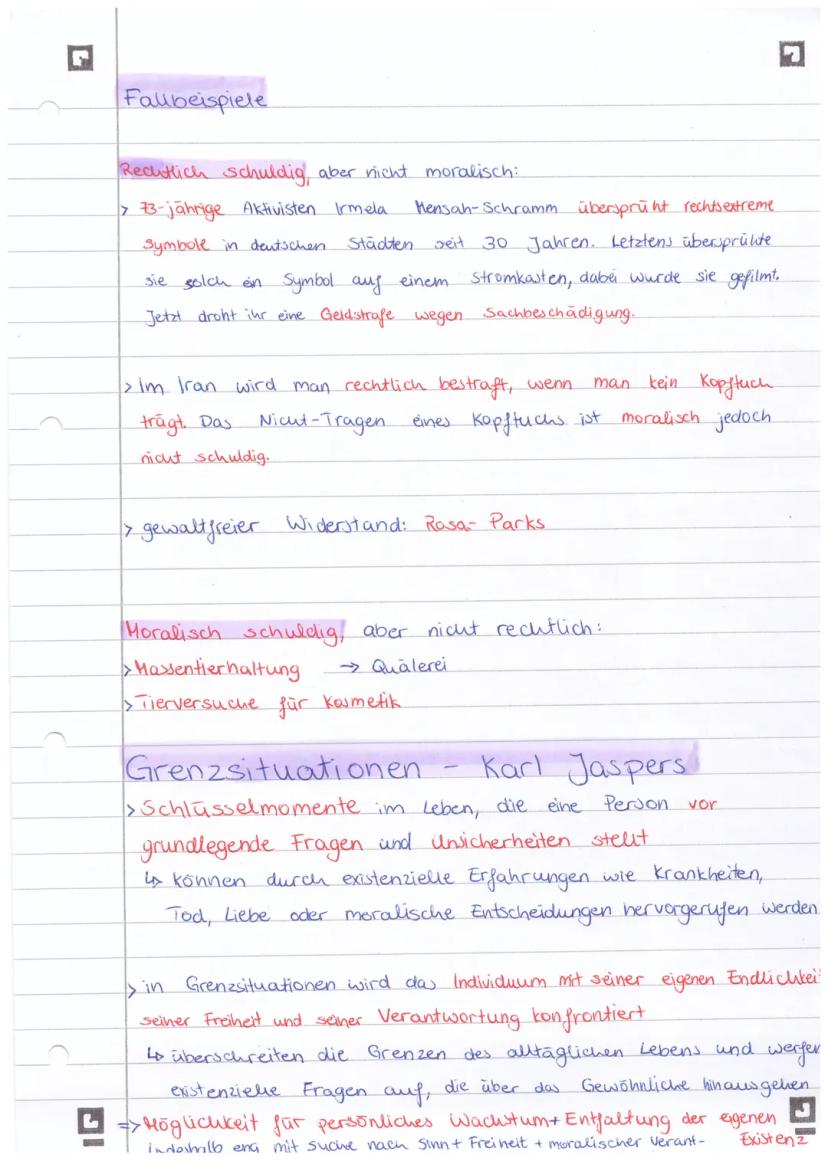 Fallbeispiele
Rechtlich schuldig, aber nicht moralisch:
> 73-jährige Aktivisten Irmela Mensah-Schramm übersprüht rechtsextreme
Symbole in deutschen Städten seit 30 Jahren. Letztens übersprühte
sie solch ein Symbol auf einem Stromkasten, dabei wurde sie gefilmt.
Jetzt droht ihr eine Geldstrafe wegen Sachbeschädigung.
> Im Iran wird man rechtlich bestraft, wenn man kein Kopftuch
trägt. Das Nicht-Tragen eines Kopftuchs ist moralisch jedoch
nicht schuldig.
> gewaltfreier Widerstand: Rosa- Parks
Moralisch schuldig, aber nicht rechtlich:
> Massentierhaltung → Quälerei
> Tierversuche für Kosmetik
Grenzsituationen - Karl Jaspers
> Schlüsselmomente im Leben, die eine Person vor
grundlegende Fragen und Unsicherheiten stellt
↳ können durch existenzielle Erfahrungen wie Krankheiten,
Tod, Liebe oder moralische Entscheidungen hervorgerufen werden
> in Grenzsituationen wird das Individuum mit seiner eigenen Endlichkei
seiner Freiheit und seiner Verantwortung konfrontiert
↳ überschreiten die Grenzen des alltäglichen Lebens und werfen
existenzielle Fragen auf, die über das Gewöhnliche hinausgehen
=> Möglichkeit für persönliches Wachstum + Entfaltung der eigenen
Existenz
eng mit Suche nach Sinn + Freiheit + moralischer Verant-